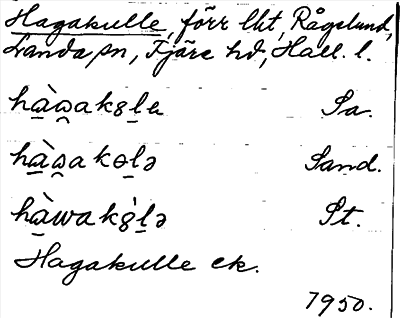 Hagakulle, förr lht, Rågelund,
Landa sn, Fjäre hd, Hall. l.
hà̱w̯akɞḻe Sa.
hà̱w̯akɵḻə Sand.
hà̱wakɞ̀ḻə St.
Hagakulle ek.
1950.